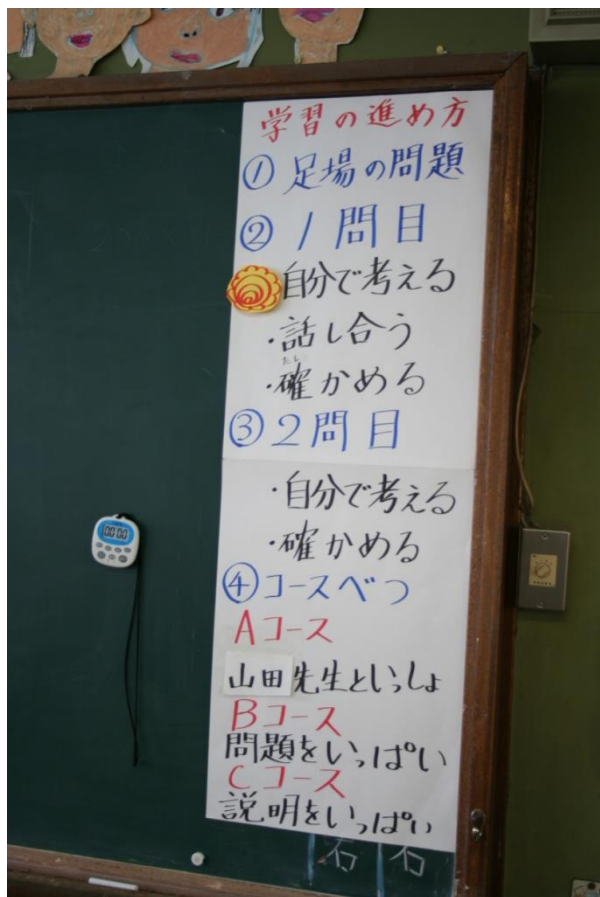 学習の進め方
① 足場の問題
② 1問目
自分で考える
・話し合う
たし
・確かめる
③ 2問目
・自分で考える
・確かめる
④ コースべつ
Aコース
山田先生といっしょ
Bコース
問題をいっぱい
Cコース
説明をいっぱい
右 右